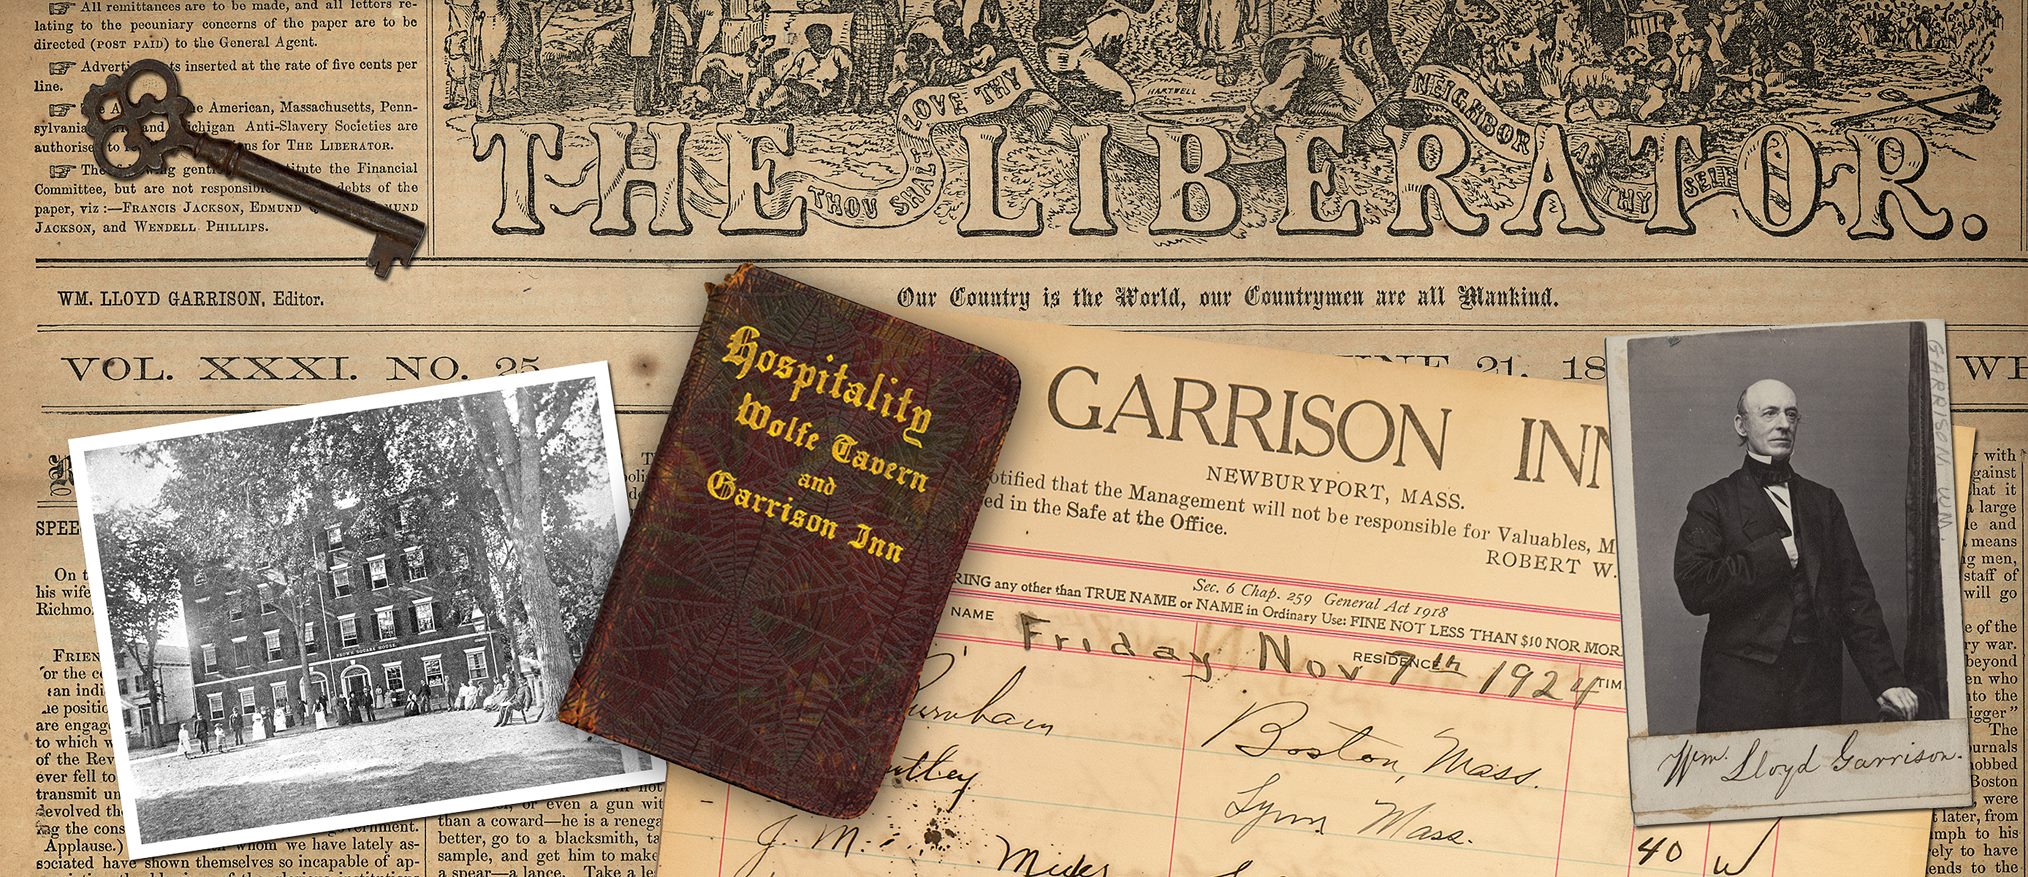 All remittances are to be made, and all letters re-
lating to the pecuniary concerns of the paper are to be
directed (POST PAID) to the General Agent.
Adverti ts inserted at the rate of five cents per
line.
e American, Massachusetts, Penn-
sylvania and ichigan Anti-Slavery Societies are
authorised to ns for THE LIBERATOR.
The ing gent itute the Financial
Committee, but are not responsible debts of the
paper, viz :—FRANCIS JACKSON, EDMUND Q MUND
JACKSON, and WENDELL PHILLIPS.
THOU SHALT LOVE THY NEIGHBOR THY SELF
HARTWELL
THE LIBERATOR.
WM. LLOYD GARRISON, Editor.
Our Country is the World, our Countrymen are all Mankind.
VOL. XXXI. NO. 25
UNE 21, 18
WH
SPEE
On t
his wife
Richmo
FRIEN
or the c
an indi
e positio
are engag
to which w
of the Rev
ever fell to
transmit un
devolved the
ng the cons
Applause.)
sociated have shown themselves so incapable of ap-
ernment.
whom we have lately as-
BROWN SQUARE HOUSE
or even a gun wit
than a coward—he is a renega
better, go to a blacksmith, ta
sample, and get him to make
a spear—a lance. Take a le
Hospitality
Wolfe Tavern
and
Garrison Inn
GARRISON INN
NEWBURYPORT, MASS.
otified that the Management will not be responsible for Valuables, M
ed in the Safe at the Office.
ROBERT W.
Sec. 6 Chap. 259 General Act 1918
RING any other than TRUE NAME or NAME in Ordinary Use: FINE NOT LESS THAN $10 NOR MOR
NAME
RESIDENCE
TIM
Friday Nov 7th 1924
Burnham
Boston, Mass.
Lynn Mass.
J. M.
40 W
GARRISON WM.
Wm. Lloyd Garrison.
y with
against
that it
a large
e and
means
ng men,
staff of
will go
e of the
ry war.
beyond
en who
to the
igger"
The
urnals
obbed
Boston
were
t later, from
mph to his
ely to have
ends to the